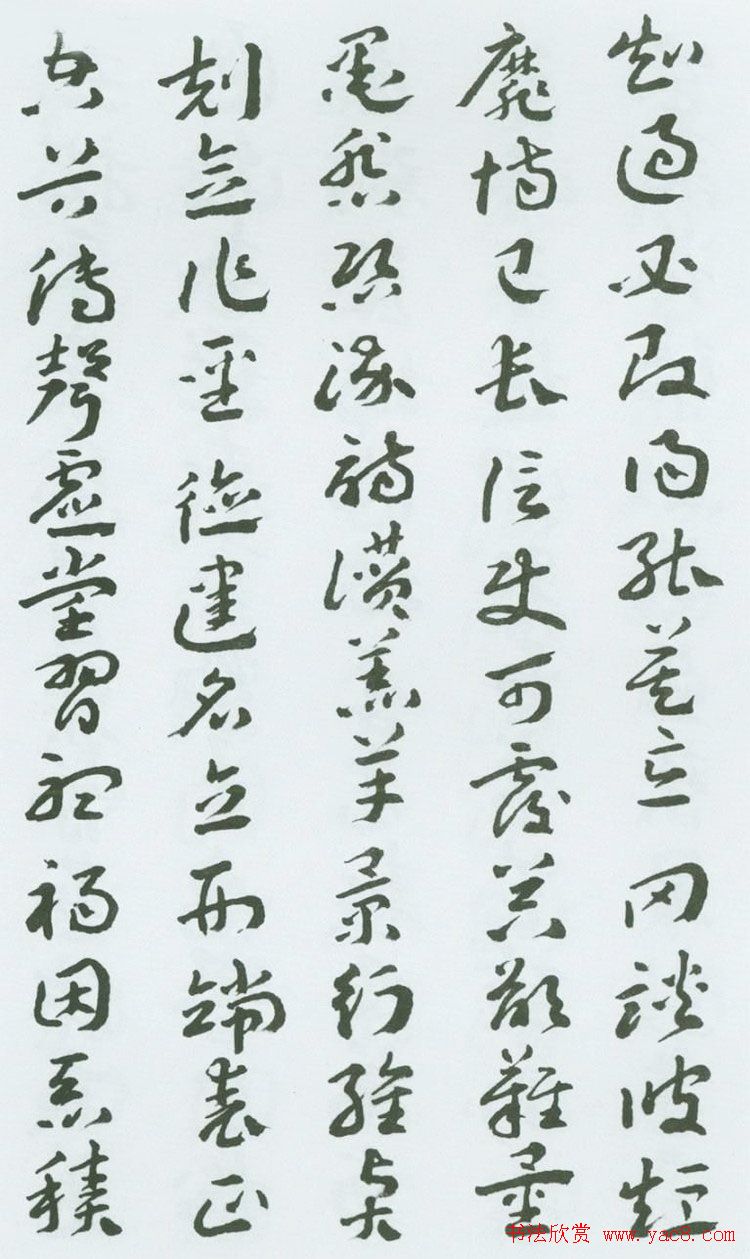 知過必改得能莫忘罔談彼短
靡恃己長信使可覆器欲難量
墨悲絲染詩讚羔羊景行維賢
剋念作聖德建名立形端表正
空谷傳聲虛堂習聽禍因惡積
书法欣赏 www.yac8.com